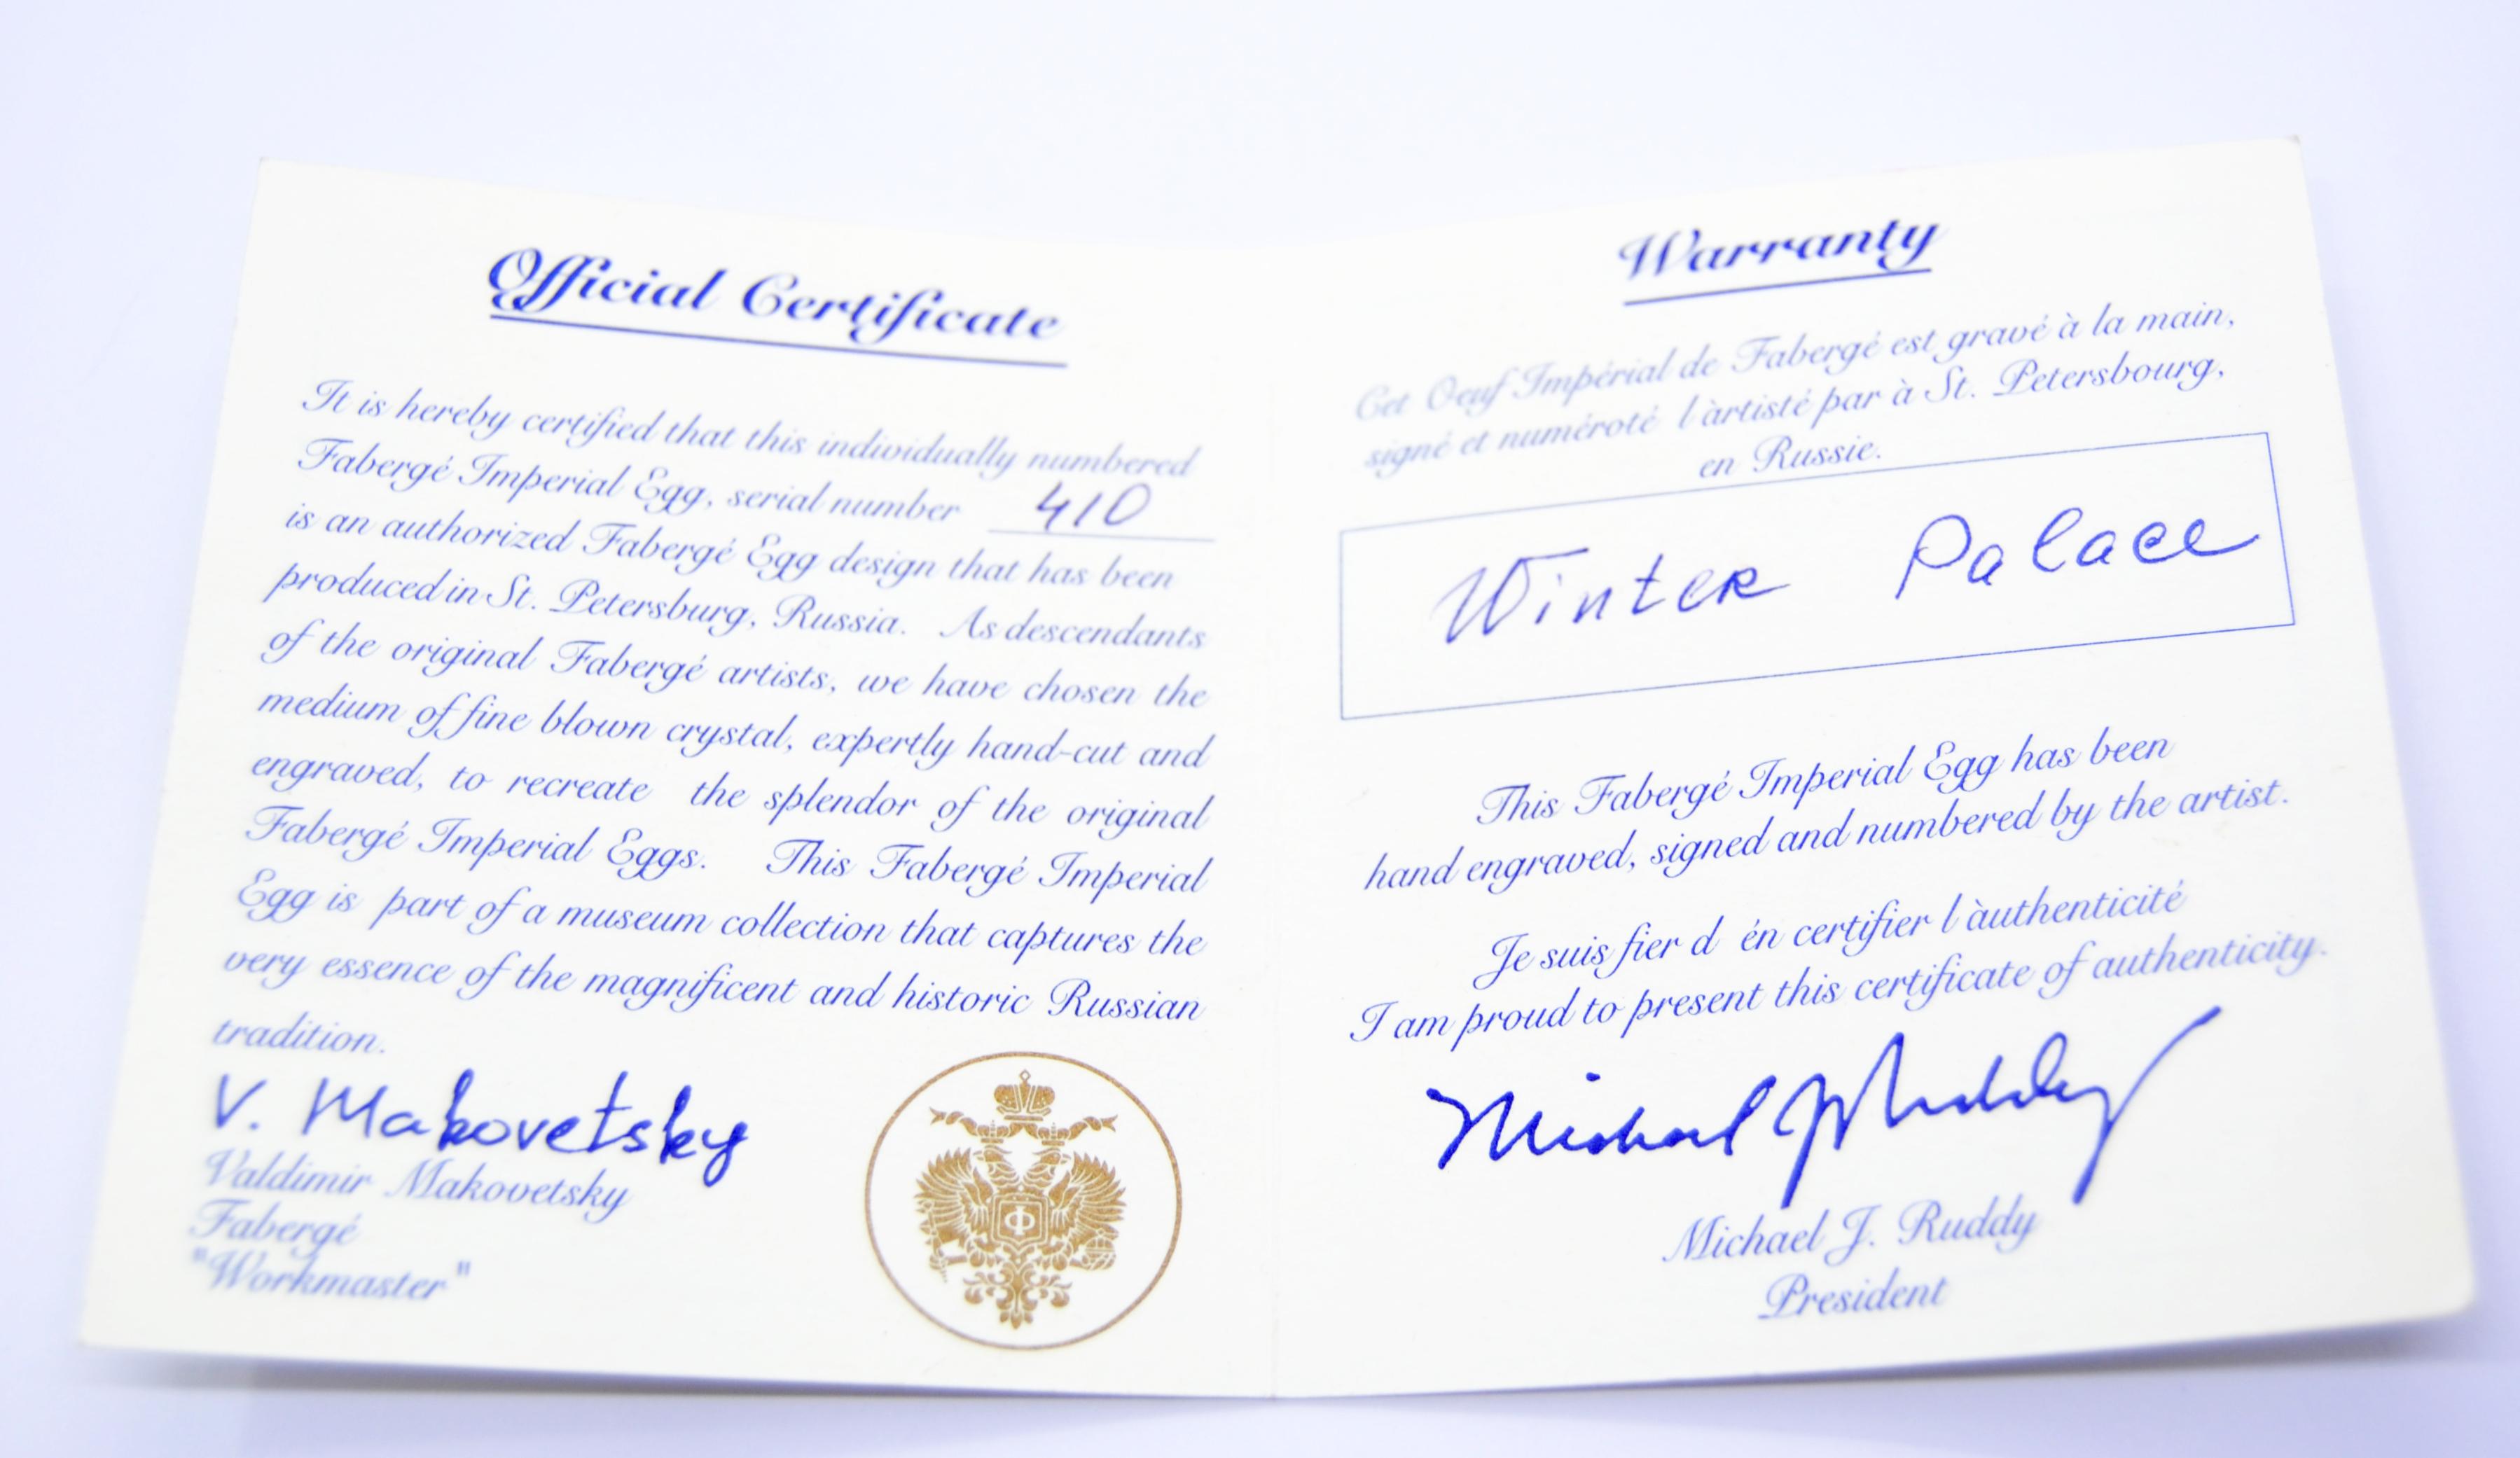 Official Certificate
It is hereby certified that this individually numbered
Fabergé Imperial Egg, serial number 410
is an authorized Fabergé Egg design that has been
produced in St. Petersburg, Russia. As descendants
of the original Fabergé artists, we have chosen the
medium of fine blown crystal, expertly hand-cut and
engraved, to recreate the splendor of the original
Fabergé Imperial Eggs. This Fabergé Imperial
Egg is part of a museum collection that captures the
very essence of the magnificent and historic Russian
tradition.
V. Makovetsky
Valdimir Makovetsky
Fabergé
"Workmaster"
Ф
Warranty
Cet Oeuf Impérial de Fabergé est gravé à la main,
signé et numéroté l àrtisté par à St. Petersbourg,
en Russie.
Winter Palace
This Fabergé Imperial Egg has been
hand engraved, signed and numbered by the artist.
Je suis fier d én certifier l àuthenticité
I am proud to present this certificate of authenticity.
Michael J Ruddy
Michael J. Ruddy
President